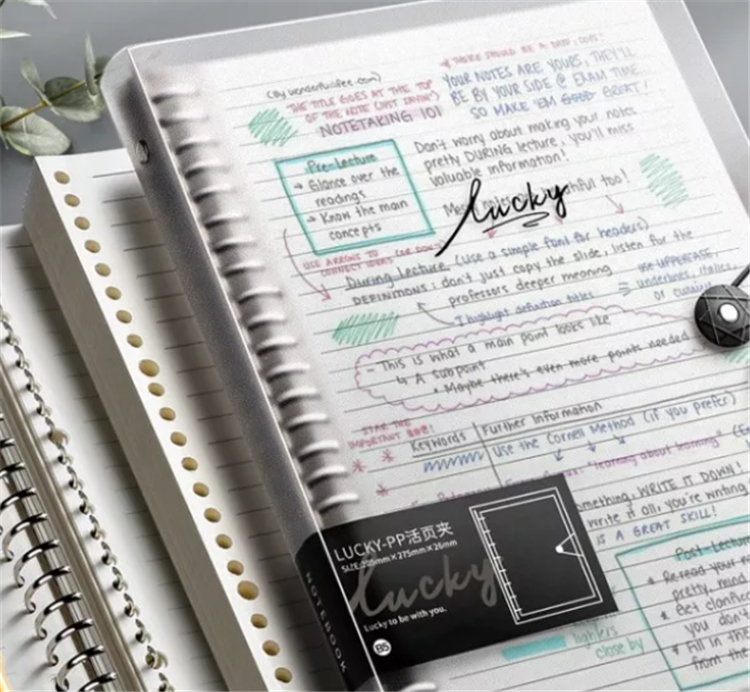 * THERE SHOULD BE A DATE, COVS!
(By wondertwifee.com)
THE TITLE GOES AT THE TOP
OF THE NOTE (JUST SAYIN')
NOTETAKING 101
YOUR NOTES ARE YOURS, THEY'LL
BE BY YOUR SIDE @ EXAM TIME...
SO MAKE 'EM GOOD GREAT!
Pre-Lecture
→ Glance over the
readings
→ Know the main
concepts
Don't worry about making your notes
pretty DURING lecture, you'll miss
valuable information!
too!
lucky
USE ARROWS TO (OR DON'T)
CONNECT IDEAS
During Lecture (use a simple font for headers)
DEFINITIONS: don't just copy the slide, listen for the
professors deeper meaning
I highlight definition titles
= use UPPERCASE,
underlines, italics
or cursive
- This is what a main point looks like
↳ A subpoint
* Maybe there's even more points needed
STAR THE
IMPORTANT
Keywords
Further Information
Use the Cornell Method (if you prefer)
"learning about learning"
something, WRITE IT DOWN!
write it all, you're writing
IS A GREAT SKILL!
LUCKY-PP活页夹
SIZE:205mm×275mm×26mm
lucky
Lucky to be with you.
B5
NOTEBOOK
Post-Lecture
* Re-read your
pretty, mind
* Get clarific
you don't
* Fill in th
from the
lighters
close by